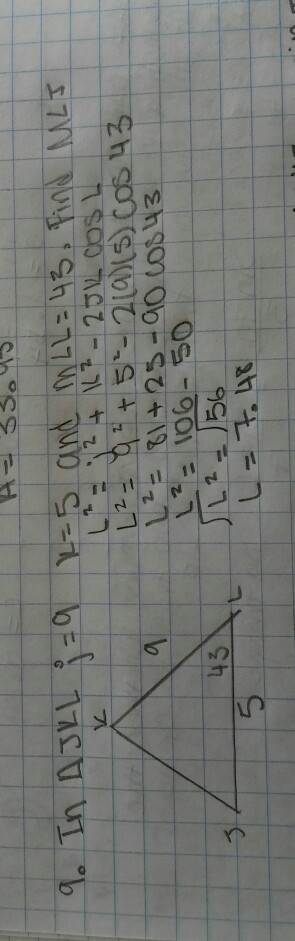 A = 33.93
9. In ΔJKL j=9 K=5 and m∠L=43. Find m∠J
L² = j² + K² - 2JK cos L
L² = 9² + 5² - 2(9)(5) cos 43
L² = 81 + 25 - 90 cos 43
L² = 106 - 50
√L² = √56
L = 7.48
K
9
43
J
5
L